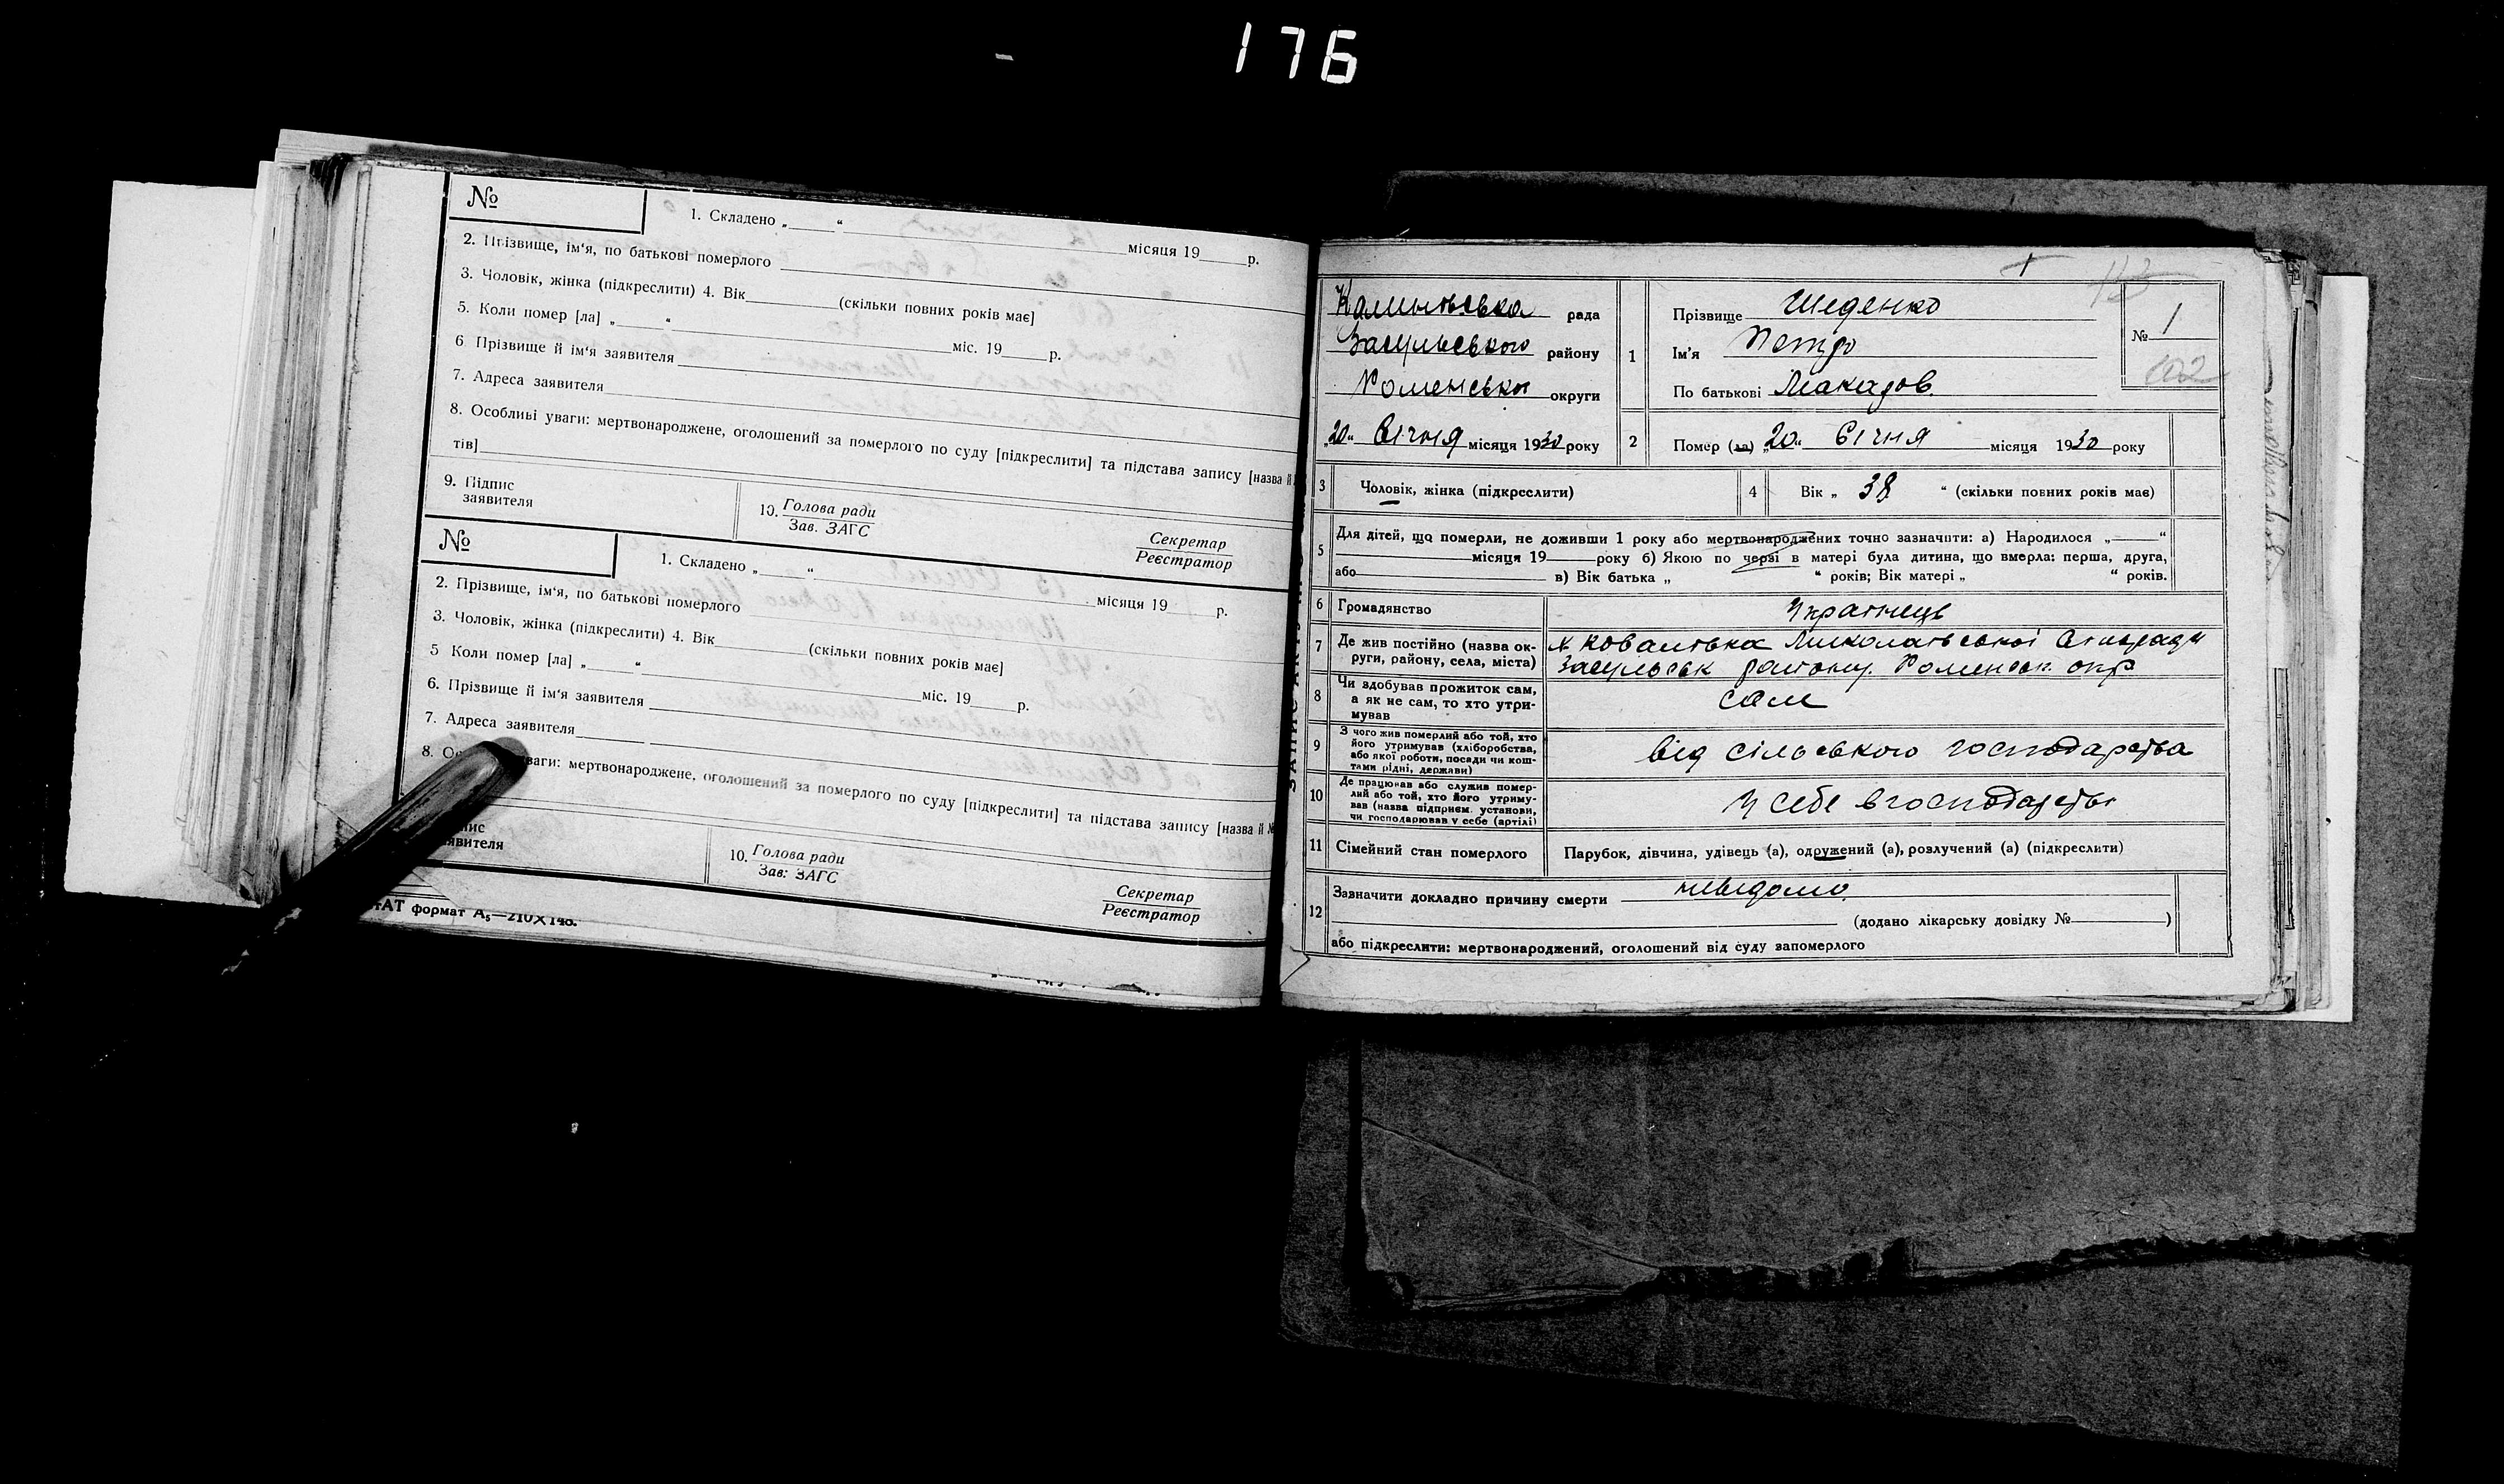 176
№
1. Складено „ “ місяця 19 р.
2. Прізвище, ім‘я, по батькові померлого
3. Чоловік, жінка (підкреслити) 4. Вік (скільки повних років має]
5. Коли помер [ла] „ “ міс. 19 р.
6 Прізвище й ім‘я заявителя
7. Адреса заявителя
8. Особливі уваги: мертвонароджене, оголошений за померлого по суду [підкреслити] та підстава запису [назва й
тів]
9. Підпис
заявителя
10. Голова ради
Зав. ЗАГС
Секретар
Реєстратор
№
1. Складено „ “ місяця 19 р.
2. Прізвище, ім‘я, по батькові померлого
3. Чоловік, жінка (підкреслити) 4. Вік (скільки повних років має]
5 Коли помер [ла] „ “ міс. 19 р.
6. Прізвище й ім‘я заявителя
7. Адреса заявителя
8. уваги: мертвонароджене, оголошений за померлого по суду [підкреслити] та підстава запису [назва й №
10. Голова ради
Зав: ЗАГС
Секретар
Реєстратор
формат А5—210×148.
рада
Засульського району
Роменська округи
„20“ Січня місяця 1930 року
1
Прізвище Шеденко
Ім‘я Петро
По батькові Макаров.
№ 1
102
2 Помер (ла) „20“ Січня місяця 1930 року
3 Чоловік, жінка (підкреслити)
4 Вік „ 38 “ (скільки повних років має)
5 Для дітей, що померли, не доживши 1 року або мертвонароджених точно зазначити: а) Народилося „ “
місяця 19 року б) Якою по черзі в матері була дитина, що вмерла: перша, друга,
або в) Вік батька „ “ років; Вік матері „ “ років.
6 Громадянство Українець
7 Де жив постійно (назва ок-
руги, району, села, міста)
х Ковалівка Миколаївської Сільради
Засульськ району. Роменськ окр
8 Чи здобував прожиток сам,
а як не сам, то хто утри-
мував
сам
9 З чого жив померлий або той, хто
його утримував (хліборобства,
або якої роботи, посади чи кош-
тами рідні, держави)
від сільського господарства
10 Де працював або служив помер-
лий або той, хто його утриму-
вав (назва підприєм. установи,
чи господарював у себе (артілі)
у себе в господарстві
11 Сімейний стан померлого
Парубок, дівчина, удівець (а), одружений (а), розлучений (а) (підкреслити)
12 Зазначити докладно причину смерти невідомо.
(додано лікарську довідку № )
або підкреслити: мертвонароджений, оголошений від суду запомерлого